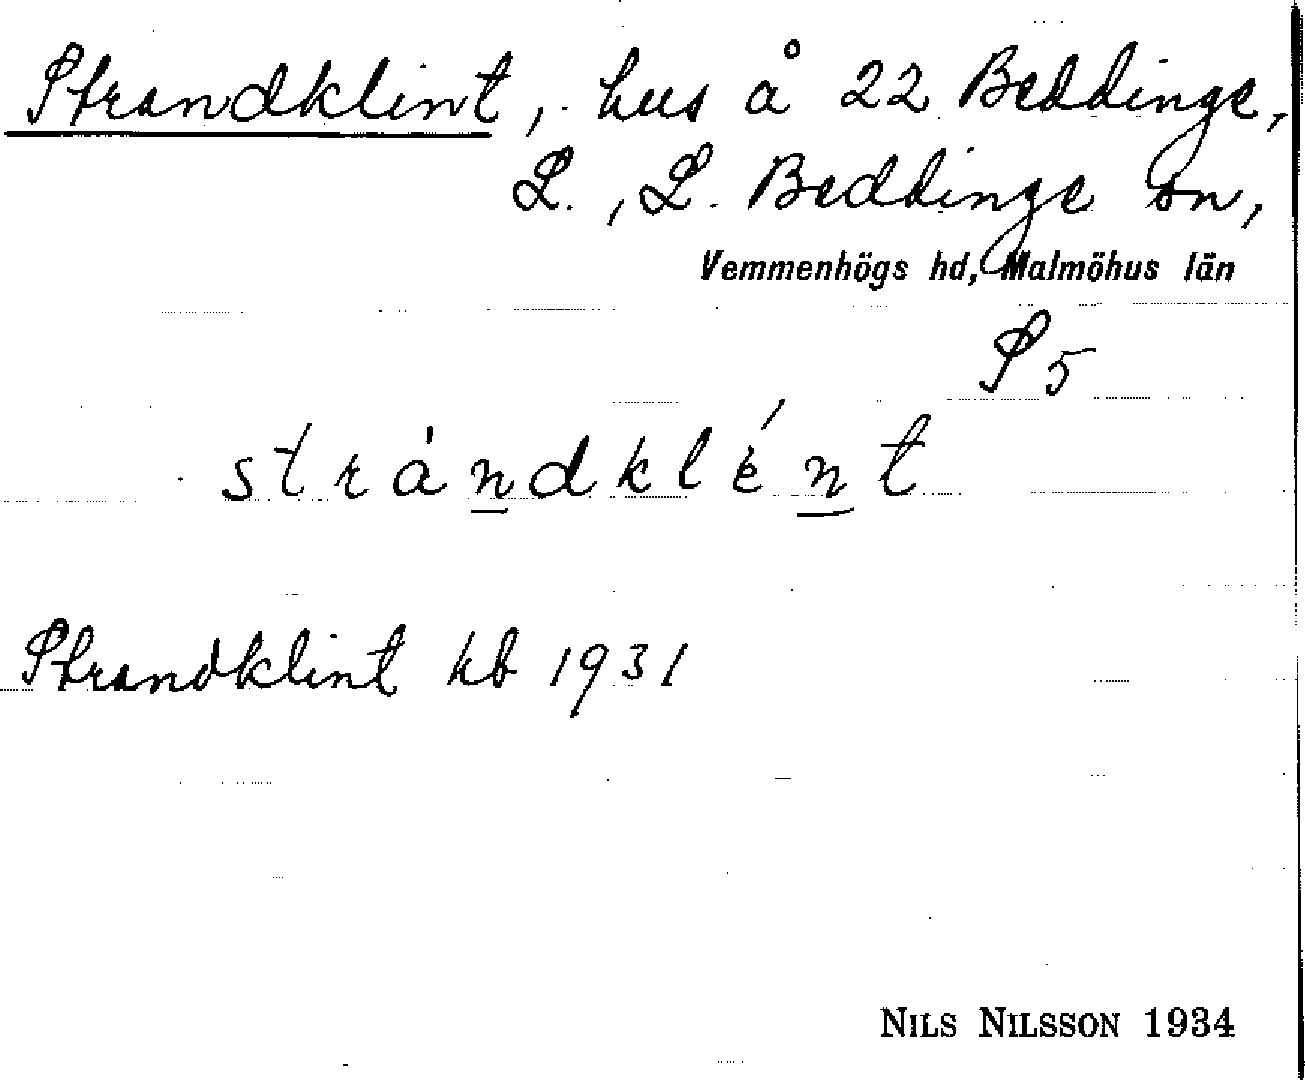 Strandklint, hus å 22 Beddinge,
L., L. Beddinge sn,
Vemmenhögs hd, Malmöhus län
S5
strándklént
Strandklint kb 1931
NILS NILSSON 1934